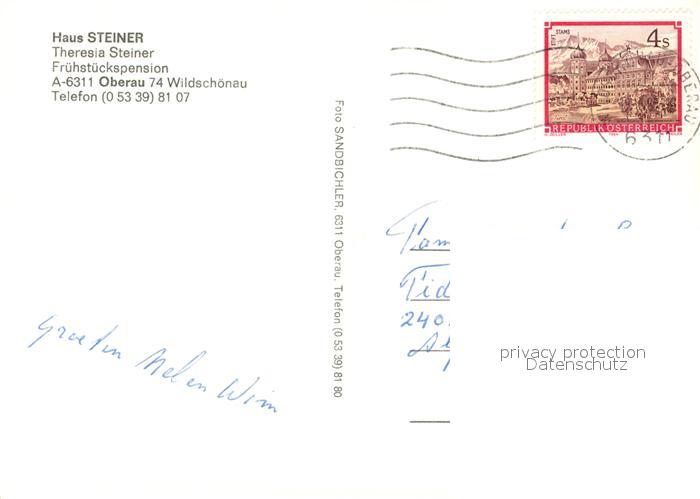 Haus STEINER
Theresia Steiner
Frühstückspension
A-6311 Oberau 74 Wildschönau
Telefon (0 53 39) 81 07
Foto SANDBICHLER, 6311 Oberau, Telefon (0 53 39) 81 80
STIFT STAMS
4s
REPUBLIK ÖSTERREICH
OBERAU
6311
Fam
Tid
240
Groeten Wim
privacy protection
Datenschutz